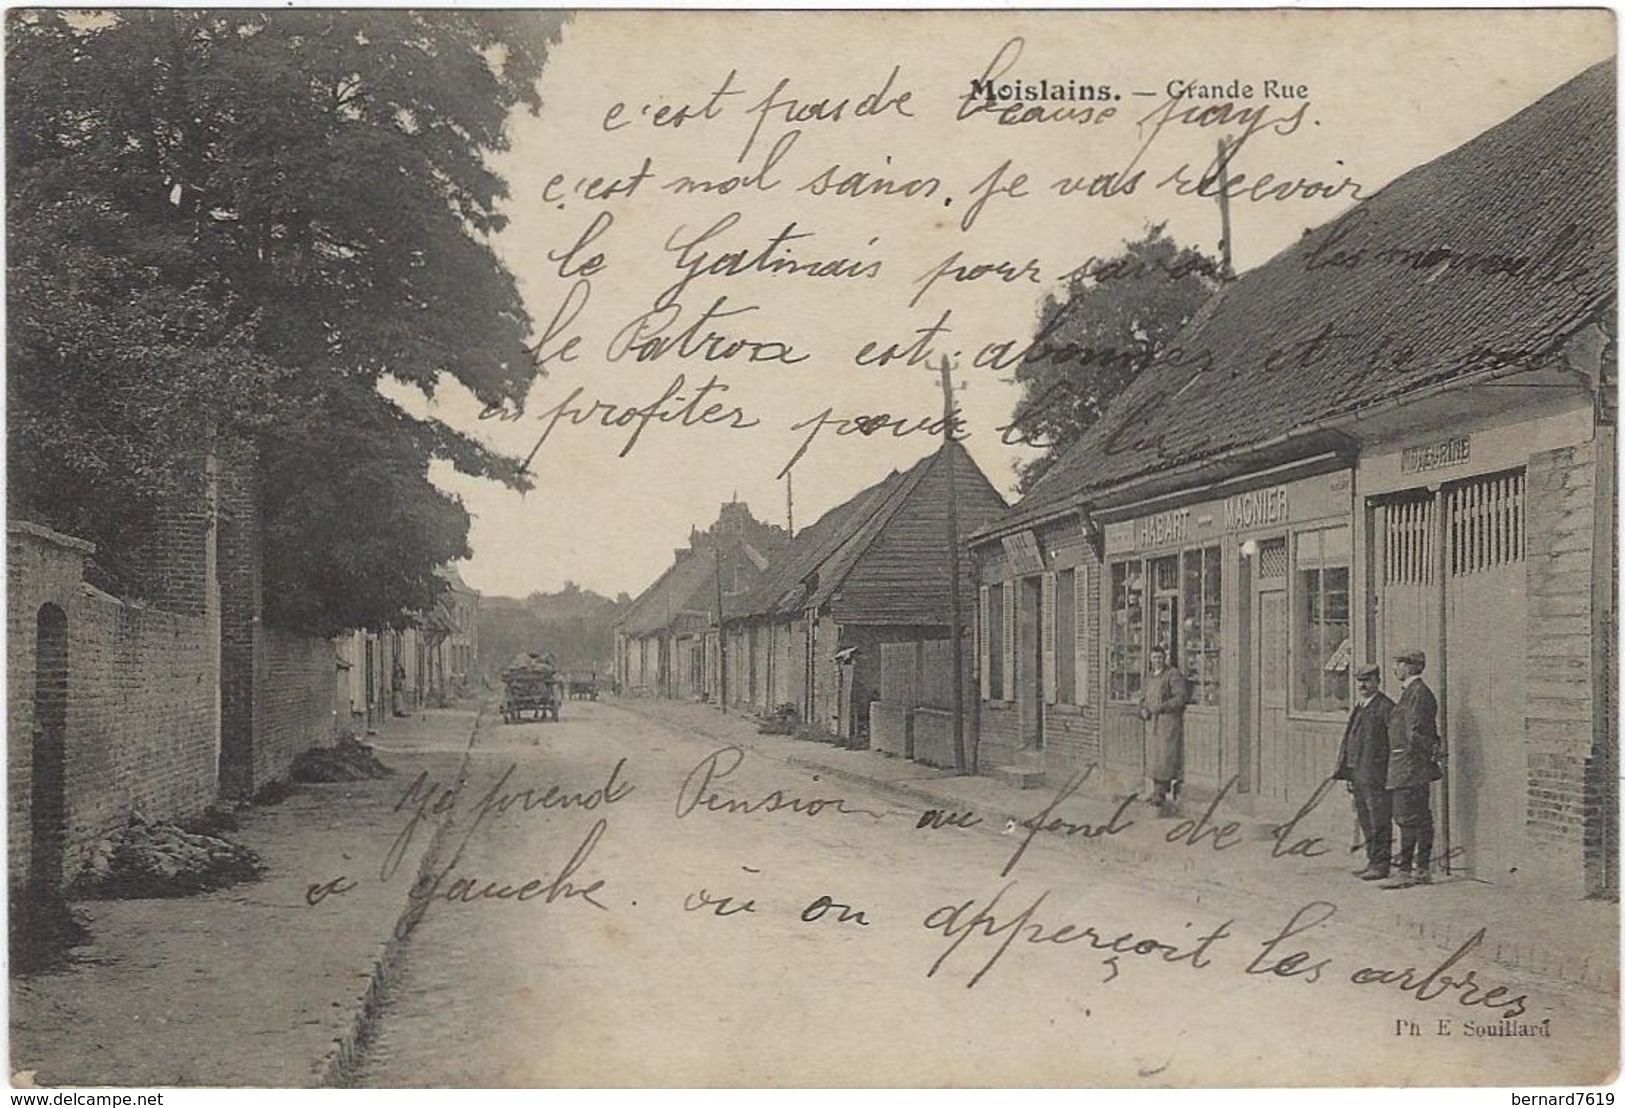 Moislains. — Grande Rue
c'est pas de beause pays.
c'est mal sains. je vas recevoir
le Gatinais pour savoir les
le Patron est abonner et je vas
en profiter pour le lire
HABART — MAGNIER
j'ai prend Pension au fond de la rue.
a gauche. où on apperçoit les arbres.
Ph E Souillard
delcampe.net
bernard7619